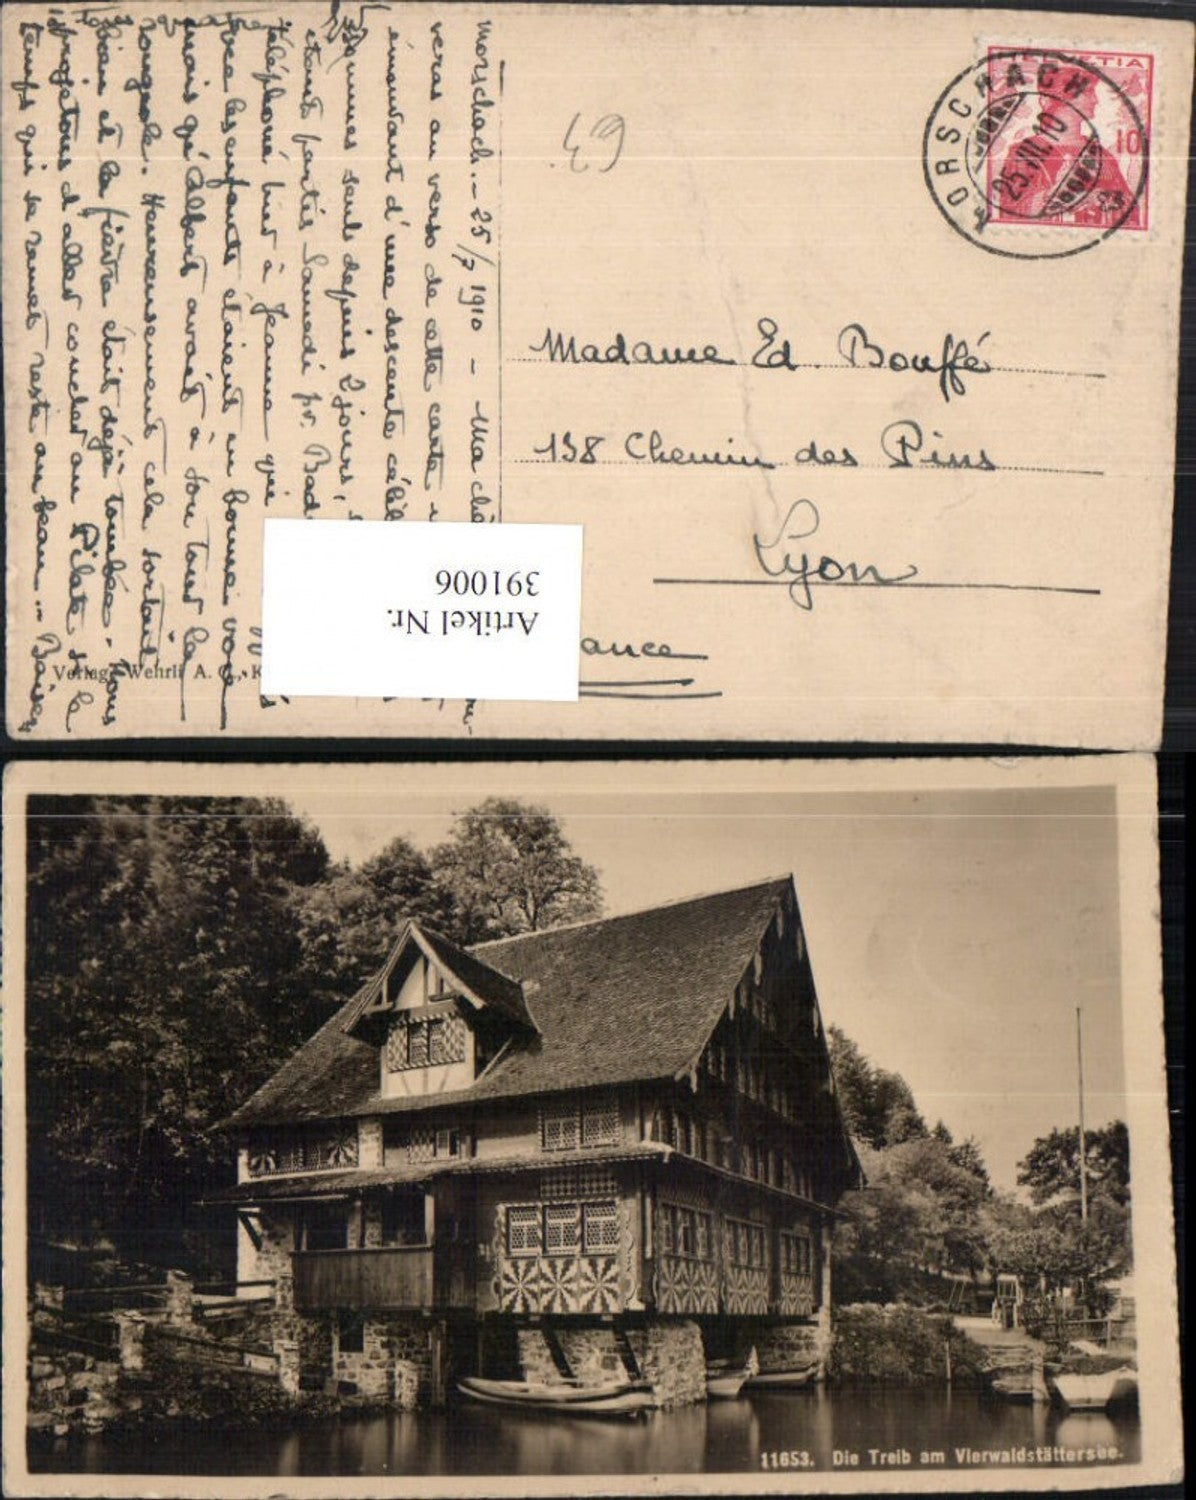 Morschach. – 25/7 1910 – Ma
verras au verso de cette carte
émouvant d'une descente
sommes seuls depuis 2 jours,
étant partis Samedi pr. Bad
téléphoné hier à Jeanne qui
avec les enfants étaient en bonne voie
mais qu'Albert avait à son tour la
rougeole. Heureusement cela sortait
bien et la fièvre était déjà tombée. Nous
projetons d'aller coucher au Pilate si le
temps qui se remet reste au beau – Baisers
63.
HELVETIA
10
MORSCHACH
25.VII.10
Madame Ed. Bouffé
138 Chemin des Pins
Lyon
ance
Verlag Wehrli A.
Artikel Nr.
391006
11653. Die Treib am Vierwaldstättersee.